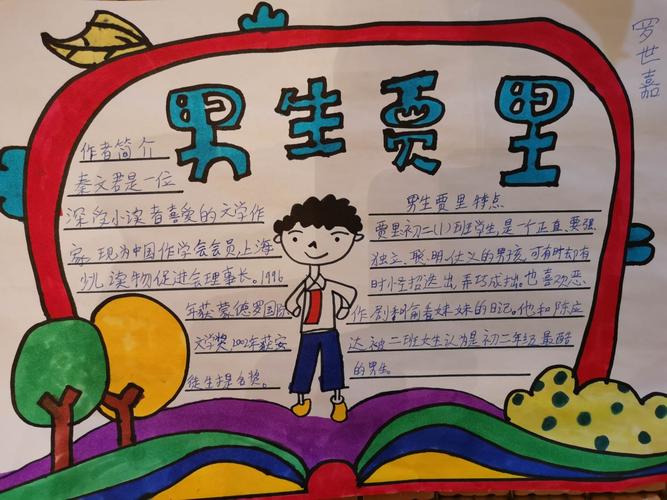 罗世嘉
男生贾里
作者简介
秦文君是一位
深受小读者喜爱的文学作
家,现为中国作学会会员,上海
少儿读物促进会理事长。1996
年获蒙德罗国际
文学奖,2002年获安
徒生提名奖。
男生贾里特点
贾里初二(1)班学生,是一个正直、要强、
独立、聪明、仗义的男孩,可有时却有
时小招迭出,弄巧成拙。也喜欢恶
作剧和偷看妹妹的日记。他和陈应
达被二班女生认为是初二年级最酷
的男生。